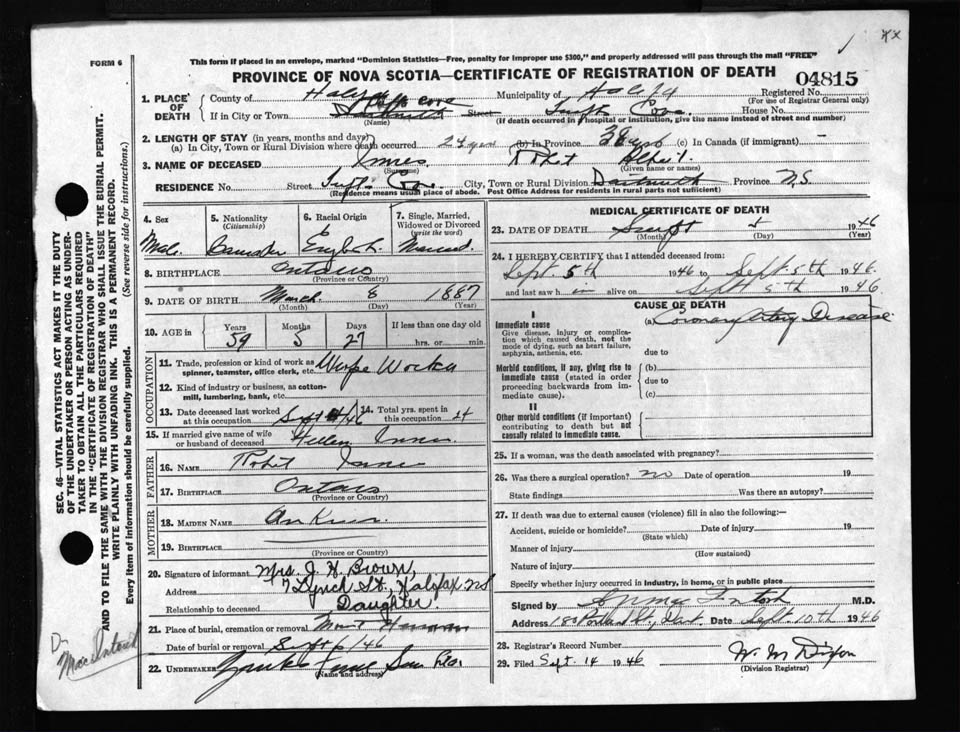 FORM 6
This form if placed in an envelope, marked "Dominion Statistics—Free, penalty for improper use $300," and properly addressed will pass through the mail "FREE"
PROVINCE OF NOVA SCOTIA—CERTIFICATE OF REGISTRATION OF DEATH
04815
1. PLACE OF DEATH
County of Halifax Municipality of Halifax Registered No.
(For use of Registrar General only)
If in City or Town Street Tufts Cove House No.
(Name) (If death occurred in hospital or institution, give the name instead of street and number)
2. LENGTH OF STAY (in years, months and days)
(a) In City, Town or Rural Division where death occurred 24 years (b) in Province 38 yrs (c) In Canada (if immigrant)
3. NAME OF DECEASED Innes Robt Albert.
(Surname) (Given name or names)
RESIDENCE No. Street Tufts Cove City, Town or Rural Division Dartmouth Province N.S.
(Residence means usual place of abode. Post Office Address for residents in rural parts not sufficient)
4. Sex
Male.
5. Nationality
(Citizenship)
Canadian
6. Racial Origin
English.
7. Single, Married, Widowed or Divorced
(write the word)
Married.
8. BIRTHPLACE Ontario
(Province or Country)
9. DATE OF BIRTH March 8 1887
(Month) (Day) (Year)
10. AGE in
Years Months Days If less than one day old
59 5 27 hrs. or min.
OCCUPATION
11. Trade, profession or kind of work as spinner, teamster, office clerk, etc. Worker
12. Kind of industry or business, as cotton-mill, lumbering, bank, etc.
13. Date deceased last worked at this occupation Sept 4/46
14. Total yrs. spent in this occupation 24
15. If married give name of wife or husband of deceased Hellen Innes.
FATHER
16. NAME Robt Innes
17. BIRTHPLACE Ontario
(Province or Country)
MOTHER
18. MAIDEN NAME
19. BIRTHPLACE
(Province or Country)
20. Signature of informant Mrs. J. H. Brown,
Address 7 Lynch St., Halifax NS
Relationship to deceased Daughter.
21. Place of burial, cremation or removal Mount Hermon
Date of burial or removal Sept 6/46
22. UNDERTAKER Son Co.
(Name and address)
MEDICAL CERTIFICATE OF DEATH
23. DATE OF DEATH Sept 5 1946
(Month) (Day) (Year)
24. I HEREBY CERTIFY that I attended deceased from
Sept 5th 1946 to Sept. 5th 1946.
and last saw h im alive on Sept 5th 1946.
CAUSE OF DEATH
I
Immediate cause
Give disease, injury or complication which caused death, not the mode of dying, such as heart failure, asphyxia, asthenia, etc.
(a) Coronary Artery Disease
due to
Morbid conditions, if any, giving rise to immediate cause (stated in order proceeding backwards from immediate cause).
(b)
due to
(c)
II
Other morbid conditions (if important) contributing to death but not causally related to immediate cause.
25. If a woman, was the death associated with pregnancy?
26. Was there a surgical operation? no Date of operation 19
State findings Was there an autopsy?
27. If death was due to external causes (violence) fill in also the following:—
Accident, suicide or homicide? Date of injury 19
(State which)
Manner of injury
(How sustained)
Nature of injury
Specify whether injury occurred in industry, in home, or in public place
Signed by MacIntosh M.D.
Address Portland St., Dart. Date Sept. 10th 1946
28. Registrar's Record Number
29. Filed Sept. 14 1946 W. M. Dixon
(Division Registrar)
SEC. 46—VITAL STATISTICS ACT MAKES IT THE DUTY
OF THE UNDERTAKER OR PERSON ACTING AS UNDER-
TAKER TO OBTAIN ALL THE PARTICULARS REQUIRED
IN THE "CERTIFICATE OF REGISTRATION OF DEATH"
AND TO FILE THE SAME WITH THE DIVISION REGISTRAR WHO SHALL ISSUE THE BURIAL PERMIT.
WRITE PLAINLY WITH UNFADING INK. THIS IS A PERMANENT RECORD.
Every item of information should be carefully supplied. (See reverse side for instructions.)
Dr
MacIntosh